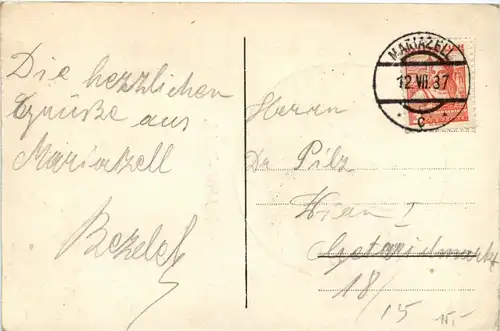 Die herzlichen
Grüße aus
Mariazell
MARIAZELL
12.VII.37
Herrn
Dr Pilz
Wien I
18/15